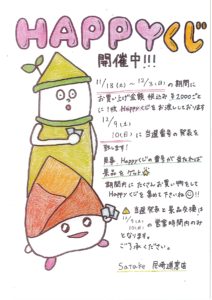 HAPPYくじ
開催中!!!
11/18(土)~12/3(日)の期間に
お買い上げ金額 税込み ¥2000ごと
に1枚 Happyくじをお渡ししております
12/9(土)
10(日)に当選番号の発表を
致します!
見事 Happyくじの番号が当れば
景品をゲット
期間内にたくさんお買い物をして
Happyくじを集めて下さいね
当選発表と景品交換は
12/9(土)
10(日)の営業時間内のみ
となります。
ご了承ください。
Satake 尼崎道意店